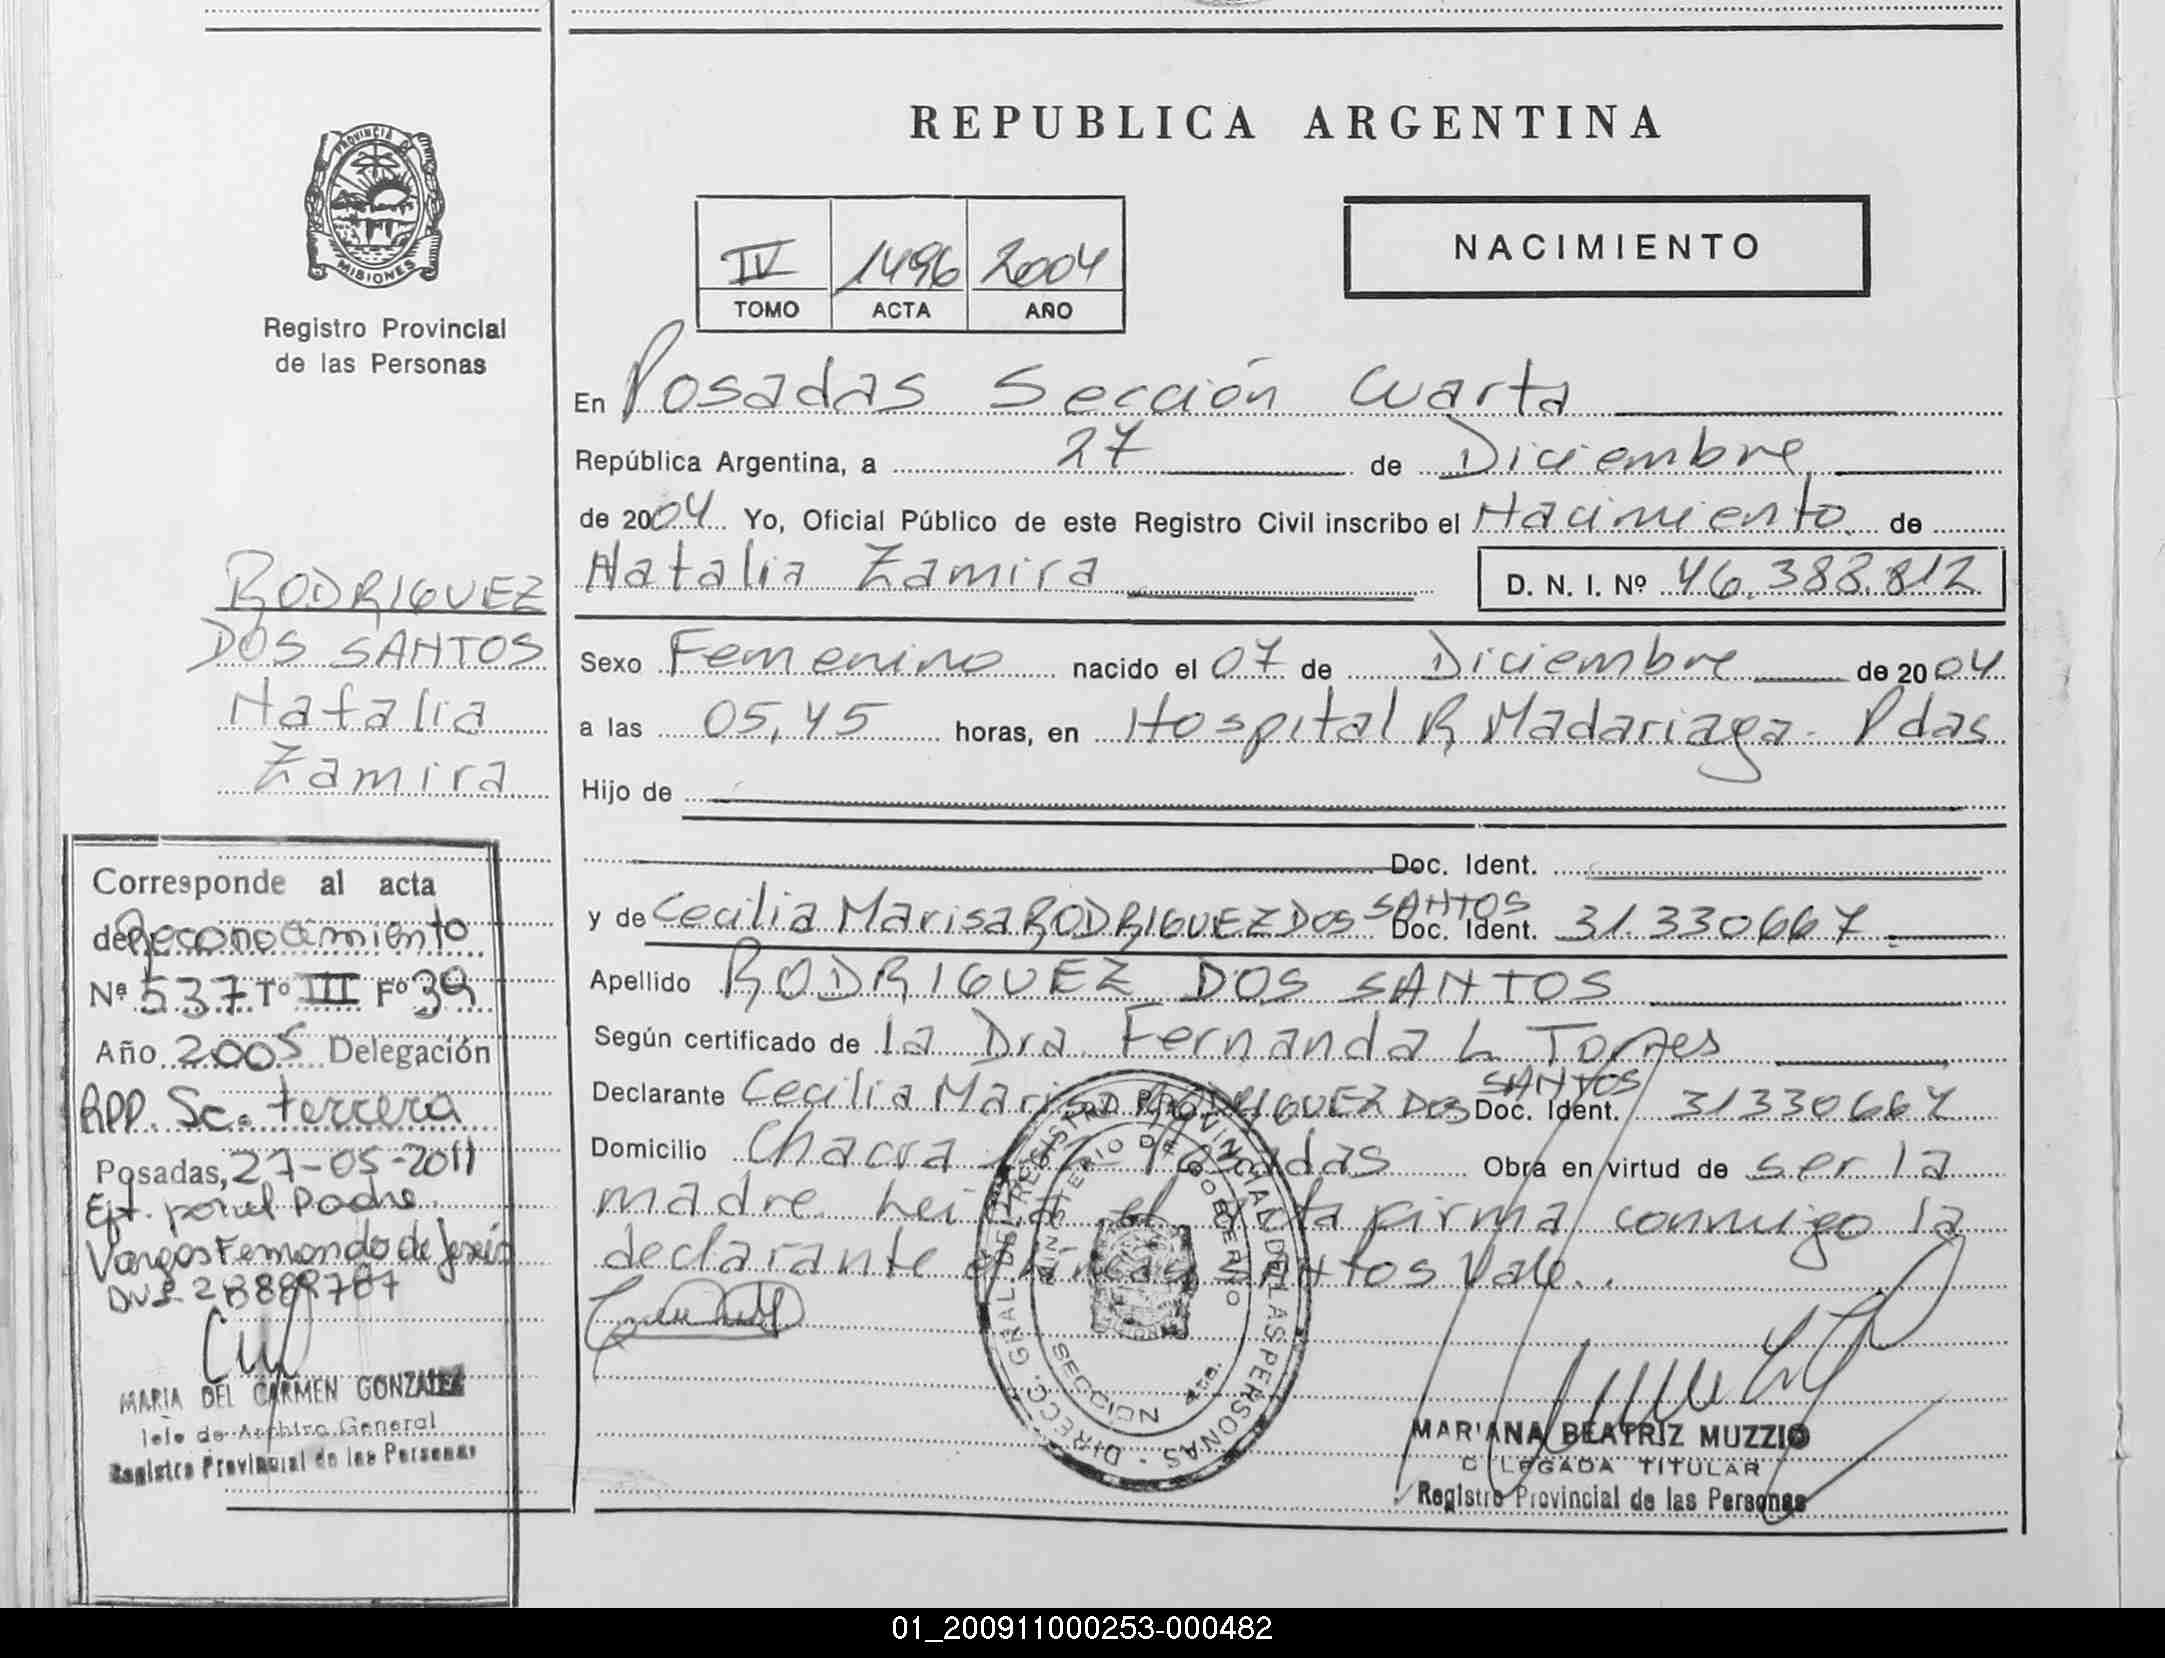 REPUBLICA ARGENTINA
PROVINCIA DE
MISIONES
Registro Provincial
de las Personas
IV 1496 2004
TOMO ACTA AÑO
NACIMIENTO
En Posadas Sección Cuarta
República Argentina, a 27 de Diciembre
de 2004 Yo, Oficial Público de este Registro Civil inscribo el Nacimiento de
Natalia Zamira D. N. I. Nº 46.388.812
Sexo Femenino nacido el 07 de Diciembre de 2004
a las 05,45 horas, en Hospital R. Madariaga - Pdas
Hijo de
Doc. Ident.
y de Cecilia Marisa RODRIGUEZ DOS SANTOS Doc. Ident. 31.330667
Apellido RODRIGUEZ DOS SANTOS
Según certificado de la Dra. Fernanda L. Torres
Declarante Cecilia Marisa RODRIGUEZ DOS SANTOS Doc. Ident. 31330667
Domicilio Chacra Posadas Obra en virtud de ser la
madre. Leida el Acta firma conmigo la
declarante e/lineas SANTOS Vale.
RODRIGUEZ
DOS SANTOS
Natalia
Zamira
Corresponde al acta
de Reconocimiento
Nº 537 Tº III Fº 39
Año 2005 Delegación
RPP. Sc. tercera
Posadas, 27-05-2011
Ejt. por el Padre
Vargas Fernando de Jesús
DNI 28889787
MARIA DEL CARMEN GONZALEZ
Jefe de Archivo General
Registro Provincial de las Personas
DIRECC. GRAL. DEL REGISTRO PROVINCIAL DE LAS PERSONAS
MINISTERIO DE GOBIERNO
SECCION 4ta.
MARIANA BEATRIZ MUZZIO
DELEGADA TITULAR
Registro Provincial de las Personas
01_200911000253-000482